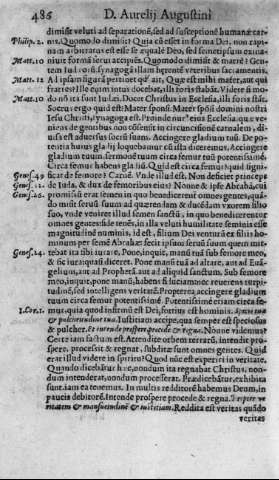 486 D. Aurelij Augustini
dimisit: veluti ad separationē, sed ad susceptionē humanæ car-
Philip. 2. nis. Quomodo dimisit? Quia cū esset in forma Dei, non rapi-
nam arbitratus est esse se æqualē Deo, sed semetipsum exina-
Matt. 10 niuit formā serui accipiēs. Quomodo dimisit & matrē? Gen-
tem Iudæorū synagogā illam hærentē veteribus sacramentis.
Matt. 12 Ad ipsam figurā pertinet qd' ait, Quæ est mihi mater, aut qui
fratres? Ille enim intus docebat, illi foris stabāt. Videte si mo-
Matt. 10 do nō ita sunt Iudæi. Docet Christus in Ecclesia, illi foris stāt.
Socrus ergo quid est? Mater sponsi. Mater spōsi domini nostri
Iesu Christi, synagoga est. Proinde nurꝰ eius Ecclesia, quæ ve-
niens de gentibus non cōsensit in circuncisionē carnalem, di-
uisa est aduersus socrū suam. Accingere gladium tuū. De po-
tentia huius gladij loquebamur cū ista diceremus, Accingere
gladium tuum sermonē tuum circa femur tuū potentissimè.
Circa femur habens gladiū. Quid est circa femur? quid signi-
Genes. 49 ficat de femore? Carnē. Vnde illud est. Non deficiet princeps
Genes. 22. de Iuda, & dux de femoribus eius? Nonne & ipse Abrahā, cui
Genes. 26. promissū erat semen in quo benedicerentur omnes gentes, quā-
do misit seruū suum ad quærendam & ducēdam vxorem filio
suo, vnde veniret illud semen sanctū, in quo benedicerentur
omnes gentes: fide tenēs, in illa velut humilitate seminis esse
magnitudinē nominis, id est, filium Dei venturū ex filijs ho-
minum per semē Abrahæ? fecit ipsum seruū suum quem mit-
Genes. 24. tebat ita sibi iurare, Pone, inquit, manū tuā sub femore meo,
& sic iura: quasi diceret. Pone manū tuā ad altare, aut ad Euā-
gelium, aut ad Prophetā, aut ad aliquid sanctum. Sub femore
meo, inquit, pone manū, habens fiduciam: non reuerens turpi-
tudinē, sed intelligens veritatē. Propterea accingere gladium
tuum circa femur potentissimè. Potentissimè etiam circa fe-
1. Cor. 1. mur, quia quod infirmū est Dei, fortius est hominibus. Specie tua
& pulchritudine tua. Iustitiam accipe, qua semper est speciosus
& pulcher. Et intende prospere procede & regna. Nonne videmus?
Certe iam factum est. Attendite orbem terrarū, intendit pro-
sperè, processit & regnat, subditæ sunt omnes gentes. Quid
erat illud videre in spiritu? Quod nūc est experiri in veritate.
Quando dicebātur hæc, nondum ita regnabat Christus, non-
dum intenderat, nondum processerat. Prædicebātur, exhibita
sunt, iam ea tenemus. In multis redditorē habemus Deum, in
paucis debitorē. Intende prospere procede & regna. Propter ve-
ritatem & mansuetudinē & iustitiam. Reddita est veritas quādo
veritas